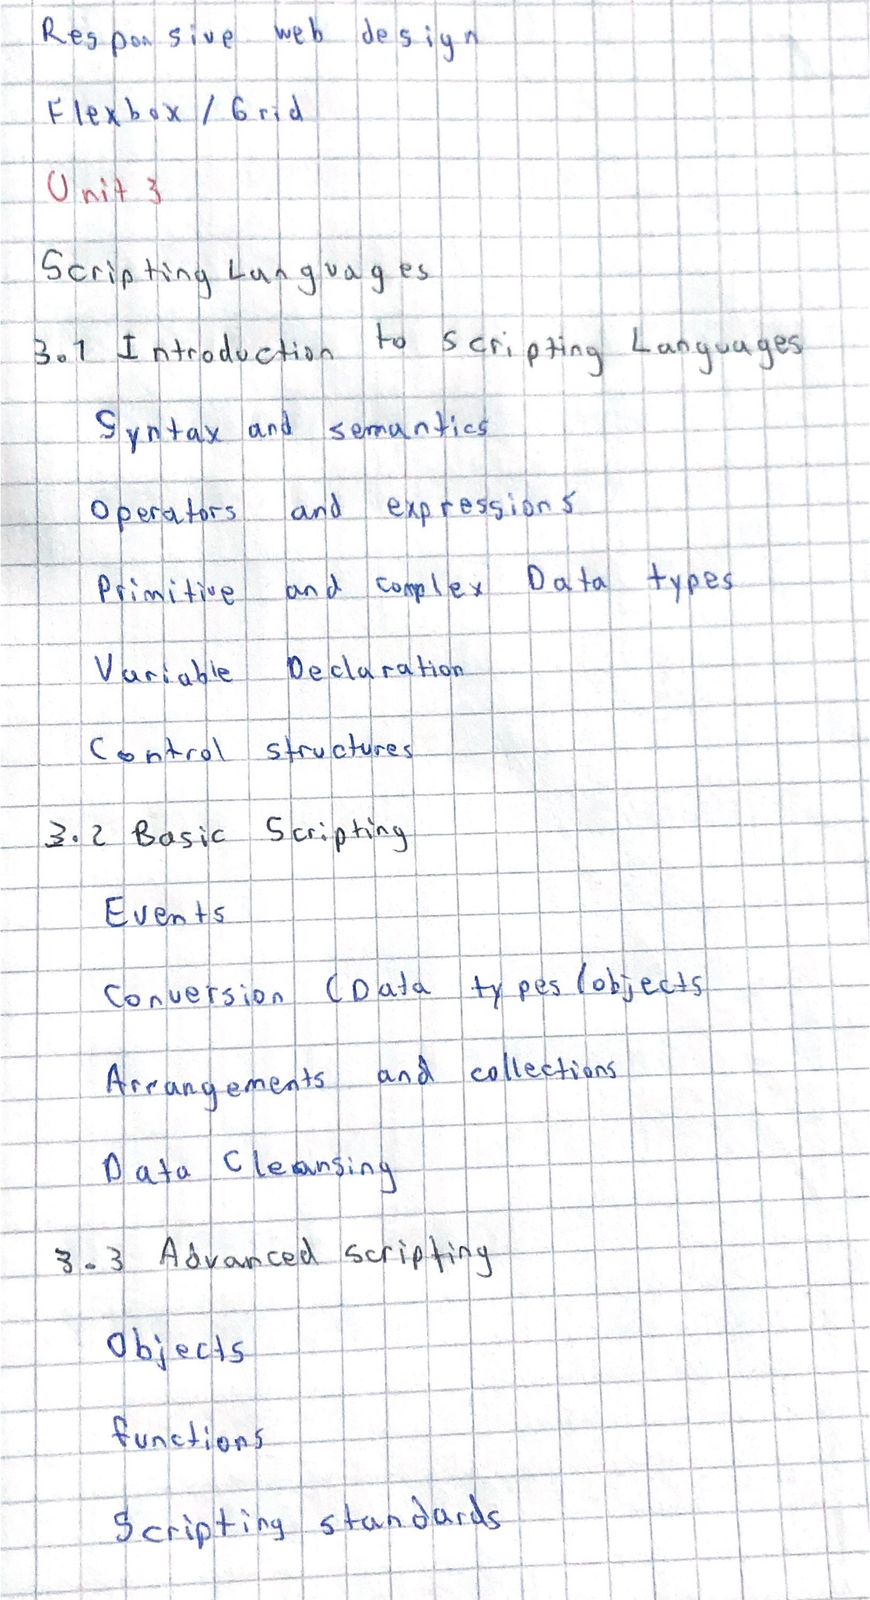 Responsive web design
Flexbox / Grid
Unit 3
Scripting Languages
3.1 Introduction to Scripting Languages
Syntax and semantics
Operators and expressions
Primitive and complex Data types
Variable Declaration
Control structures
3.2 Basic Scripting
Events
Conversion (Data types/objects
Arrangements and collections
Data Cleansing
3.3 Advanced scripting
Objects
functions
Scripting standards